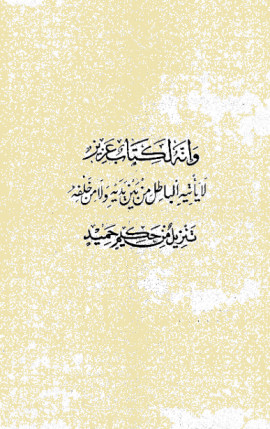 وَإِنَّهُ لَكِتَابٌ عَزِيزٌ
لَا يَأْتِيهِ الْبَاطِلُ مِنْ بَيْنِ يَدَيْهِ وَلَا مِنْ خَلْفِهِ
تَنْزِيلٌ مِنْ حَكِيمٍ حَمِيدٍ